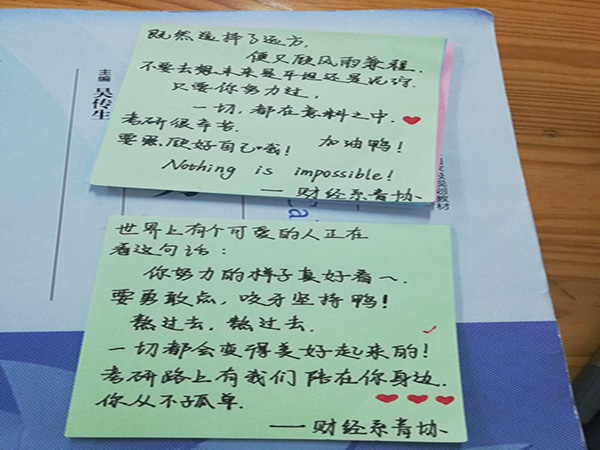 既然选择了远方,
便只顾风雨兼程.
不要去想未来是平坦还是泥泞.
只要你努力过,
一切,都在意料之中.
考研很辛苦.
要照顾好自己哦! 加油鸭!
Nothing is impossible!
——财经系青协
主编 吴传生
教材
世界上有个可爱的人正在
看这句话:
你努力的样子真好看~.
要勇敢点,咬牙坚持鸭!
熬过去,熬过去.
一切都会变得美好起来的!
考研路上有我们陪在你身边.
你从不孤单.
——财经系青协